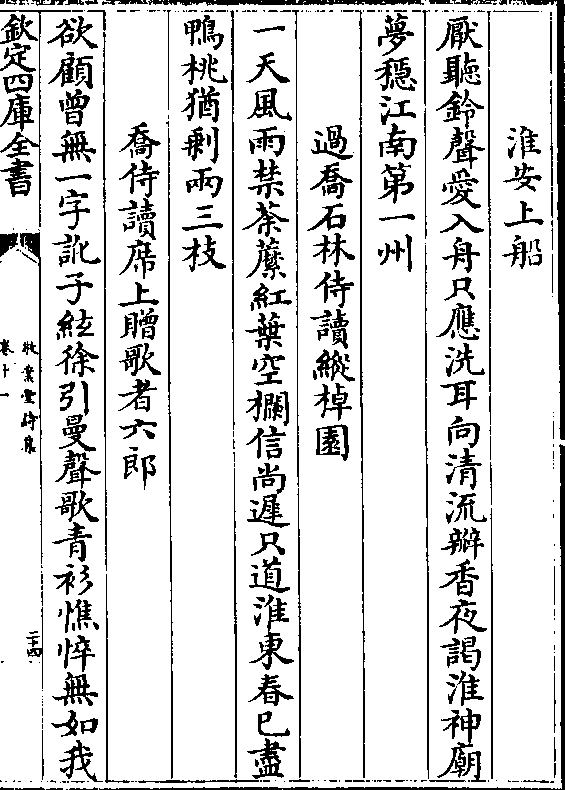 淮安上船
厭聽鈴聲愛入舟只應洗耳向清流瓣香夜謁淮神廟
夢穩江南第一州
過喬石林侍讀縱棹園
一天風雨禁荼蘼紅葉空欄信尚遲只道淮東春已盡
鴨桃猶剩兩三枝
喬侍讀席上贈歌者六郎
欲顧曾無一字訛子絃徐引曼聲歌青衫憔悴無如我
欽定四庫全書
敬業堂詩集
卷十一
二十四